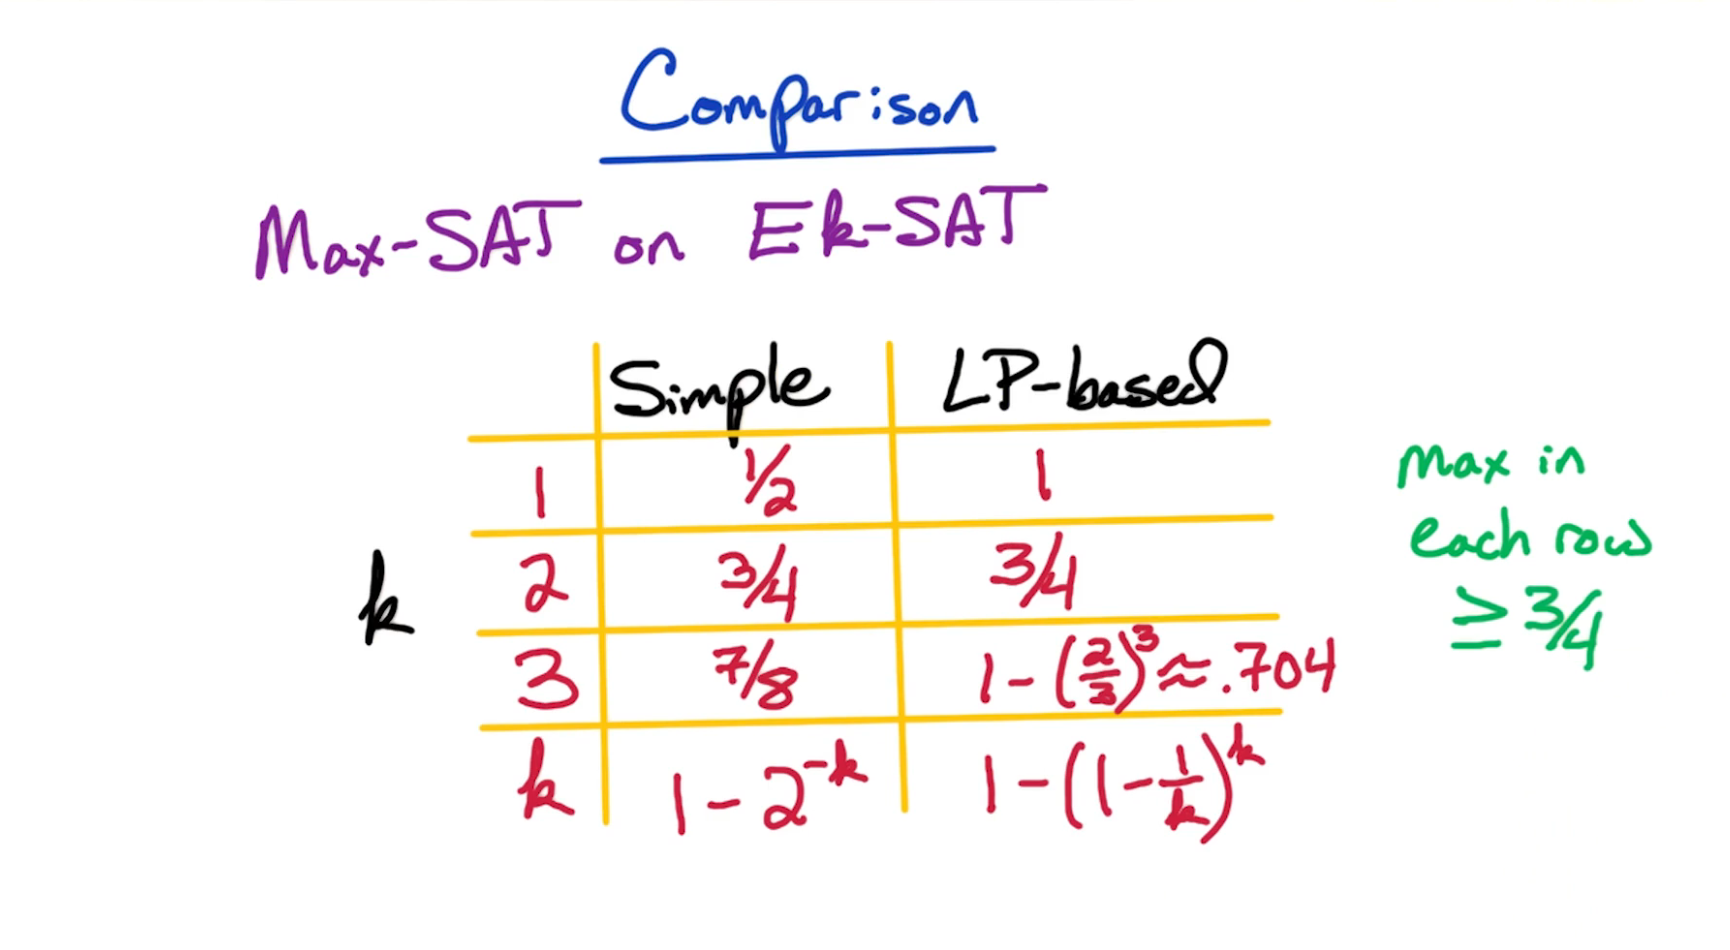 Comparison
Max-SAT on Ek-SAT
Simple LP-based
1 1/2 1
2 3/4 3/4
3 7/8 1-(2/3)^3≈.704
k 1-2^-k 1-(1-1/k)^k
k
max in
each row
≥3/4